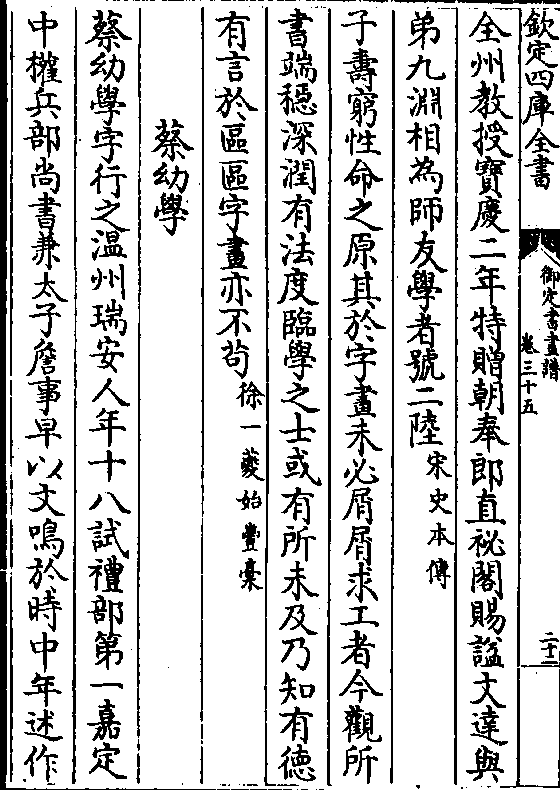 欽定四庫全書
御定書畫譜
卷三十五
二十二
全州教授寶慶二年特贈朝奉郎直祕閣賜諡文達與
弟九淵相為師友學者號二陸宋史本傳
子壽窮性命之原其於字畫未必屑屑求工者今觀所
書端穩深潤有法度臨學之士或有所未及乃知有德
有言於區區字畫亦不苟徐一夔始豐稾
蔡幼學
蔡幼學字行之溫州瑞安人年十八試禮部第一嘉定
中權兵部尚書兼太子詹事早以文鳴於時中年述作